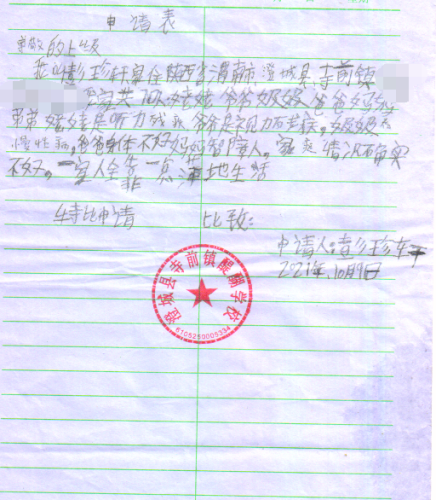 申请表
尊敬的上级
我叫彭珍轩家住陕西省渭南市澄城县寺前镇
家共10口姥姥爷爷奶奶爸爸妈妈
弟弟 是听力残疾爷爷是视力 奶奶
慢性病,爸爸身体不好妈妈智障人。家庭情况确实
不好。一家人全靠一点薄地生活
特此申请 此致:
申请人:彭珍轩
2021年.10月9日
澄城县寺前镇醍醐学校
6105250005334